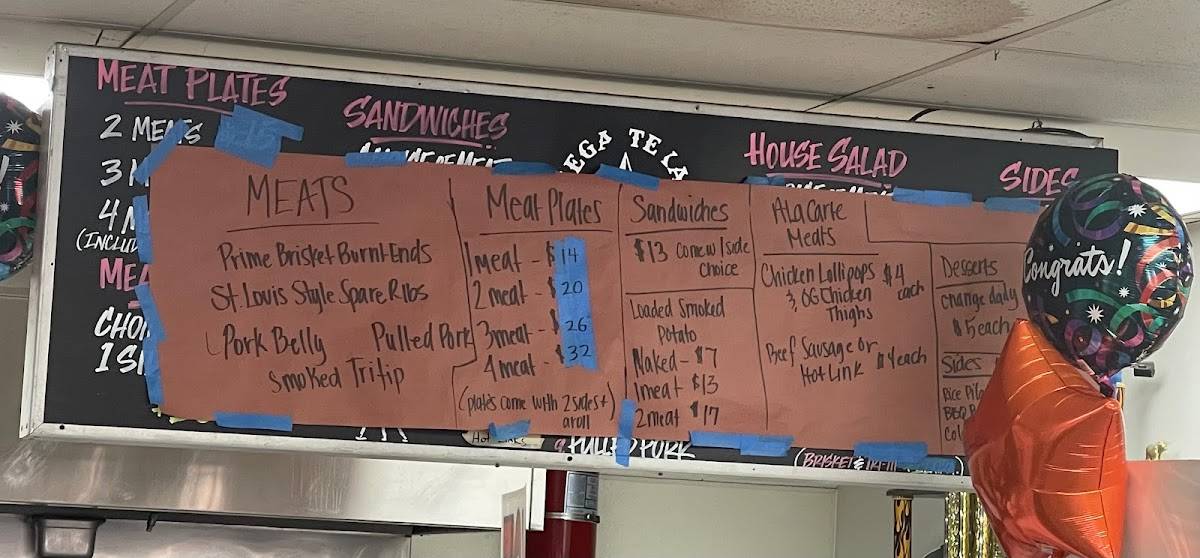 MEAT PLATES
2 MEATS
$15
3 M
4 M
(INCLUD
MEA
CHO
1 SI
SANDWICHES
CHOICE OF MEAT
EGA TEXA
HOUSE SALAD
SIDES
MEATS
Prime Brisket Burnt Ends
St. Louis Style Spare Ribs
Pork Belly Pulled Pork
Smoked Tri tip
Meat Plates
1 meat - $14
2 meat - $20
3 meat - $26
4 meat - $32
(plates come with 2 sides +
a roll)
Sandwiches
$13 come w/ side
choice
Loaded Smoked
Potato
Naked - $7
1 meat $13
2 meat $17
A La Carte
Meats
Chicken Lollipops $4
each
& OG Chicken
Thighs
Beef Sausage or $4 each
Hot Link
Desserts
change daily
$5, each
Sides
Rice Pila
BBQ B
Col
HOT LINKS
PULLED PORK
(BRISKET & TRI-TI
Congrats!